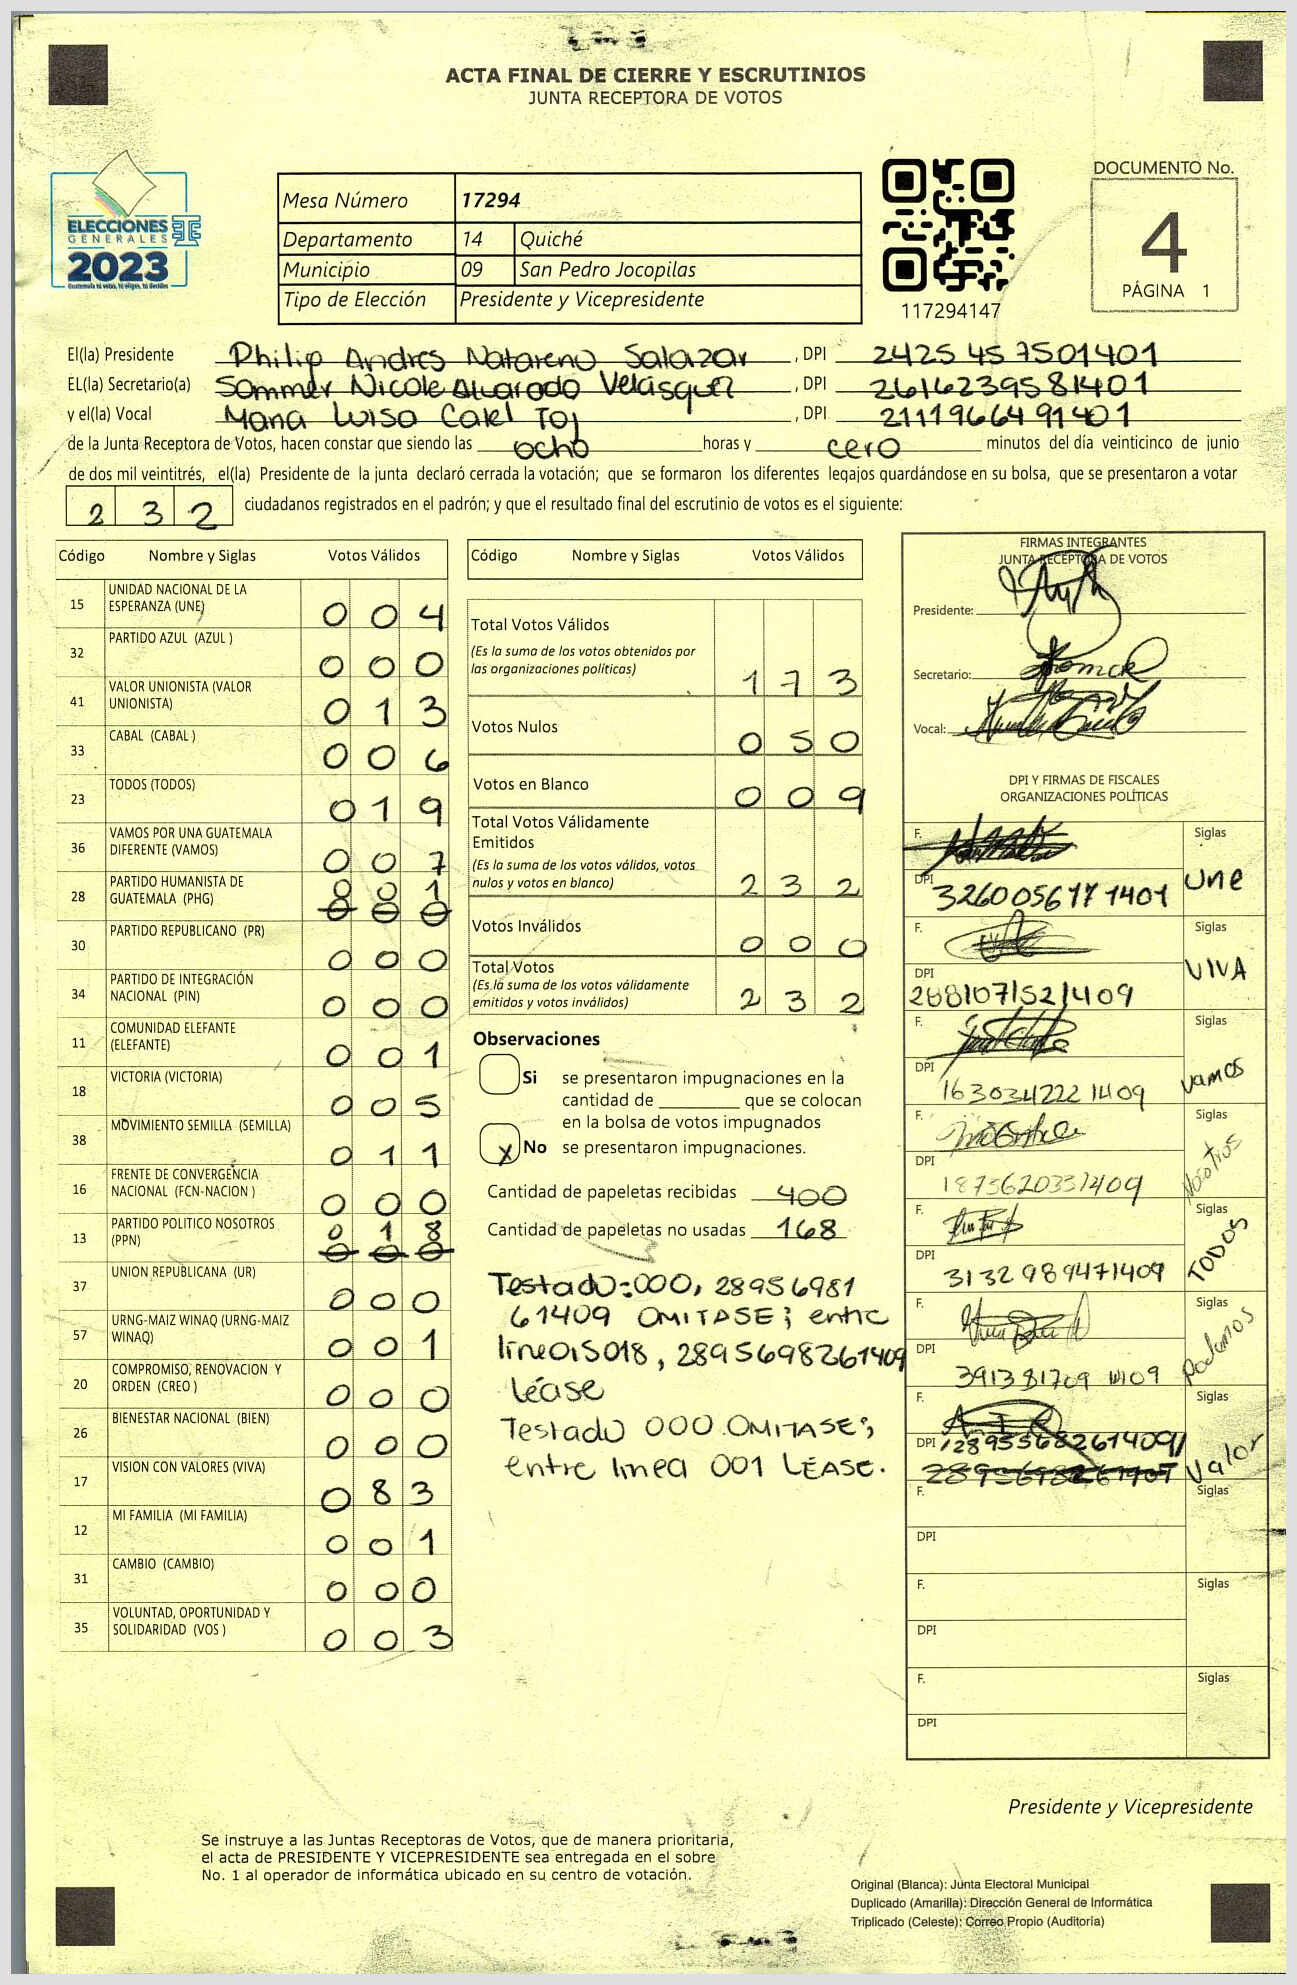 ACTA FINAL DE CIERRE Y ESCRUTINIOS
JUNTA RECEPTORA DE VOTOS
ELECCIONES
GENERALES
2023
Guatemala tú votas, tú eliges, tú decides
Mesa Número 17294
Departamento 14 Quiché
Municipio 09 San Pedro Jocopilas
Tipo de Elección Presidente y Vicepresidente
117294147
DOCUMENTO No.
4
PÁGINA 1
El(la) Presidente Philip Andres Natareno Salazar, DPI 2425457501401
EL(la) Secretario(a) Sommer Nicole Alvarado Velásquez, DPI 2616239581401
y el(la) Vocal Maria Luisa Calel Toj, DPI 2111966491401
de la Junta Receptora de Votos, hacen constar que siendo las ocho horas y cero minutos del día veinticinco de junio
de dos mil veintitrés, el(la) Presidente de la junta declaró cerrada la votación; que se formaron los diferentes legajos guardándose en su bolsa, que se presentaron a votar
232 ciudadanos registrados en el padrón; y que el resultado final del escrutinio de votos es el siguiente:
Código Nombre y Siglas Votos Válidos
15 UNIDAD NACIONAL DE LA ESPERANZA (UNE) 004
32 PARTIDO AZUL (AZUL ) 000
41 VALOR UNIONISTA (VALOR UNIONISTA) 013
33 CABAL (CABAL ) 006
23 TODOS (TODOS) 019
36 VAMOS POR UNA GUATEMALA DIFERENTE (VAMOS) 007
28 PARTIDO HUMANISTA DE GUATEMALA (PHG) 001
000
30 PARTIDO REPUBLICANO (PR) 000
34 PARTIDO DE INTEGRACIÓN NACIONAL (PIN) 000
11 COMUNIDAD ELEFANTE (ELEFANTE) 001
18 VICTORIA (VICTORIA) 005
38 MOVIMIENTO SEMILLA (SEMILLA) 011
16 FRENTE DE CONVERGENCIA NACIONAL (FCN-NACION ) 000
13 PARTIDO POLITICO NOSOTROS (PPN) 018
000
37 UNION REPUBLICANA (UR) 000
57 URNG-MAIZ WINAQ (URNG-MAIZ WINAQ) 001
20 COMPROMISO, RENOVACION Y ORDEN (CREO ) 000
26 BIENESTAR NACIONAL (BIEN) 000
17 VISION CON VALORES (VIVA) 083
12 MI FAMILIA (MI FAMILIA) 001
31 CAMBIO (CAMBIO) 000
35 VOLUNTAD, OPORTUNIDAD Y SOLIDARIDAD (VOS ) 003
Código Nombre y Siglas Votos Válidos
Total Votos Válidos 173
(Es la suma de los votos obtenidos por
las organizaciones políticas)
Votos Nulos 050
Votos en Blanco 009
Total Votos Válidamente
Emitidos 232
(Es la suma de los votos válidos, votos
nulos y votos en blanco)
Votos Inválidos 000
Total Votos 232
(Es la suma de los votos válidamente
emitidos y votos inválidos)
Observaciones
Si se presentaron impugnaciones en la
cantidad de ________ que se colocan
en la bolsa de votos impugnados
X No se presentaron impugnaciones.
Cantidad de papeletas recibidas 400
Cantidad de papeletas no usadas 168
Testado:000, 28956981
61409 OMITASE; entre
lineas018, 2895698261409
Léase
Testado 000 OMITASE;
entre linea 001 LÉASE.
FIRMAS INTEGRANTES
JUNTA RECEPTORA DE VOTOS
Presidente:
Secretario:
Vocal:
DPI Y FIRMAS DE FISCALES
ORGANIZACIONES POLÍTICAS
F. Siglas
DPI 3260056171401 Une
F. Siglas
DPI 2881071521409 VIVA
F. Siglas
DPI 1630342221409 vamos
F. Siglas
DPI 1875620331409 Nosotros
F. Siglas
DPI 3132989471409 TODOS
F. Siglas
DPI 3913817091409 Podemos
F. Siglas
DPI 2895568261409 Valor
F. Siglas
DPI
F. Siglas
DPI
F. Siglas
DPI
Presidente y Vicepresidente
Se instruye a las Juntas Receptoras de Votos, que de manera prioritaria,
el acta de PRESIDENTE Y VICEPRESIDENTE sea entregada en el sobre
No. 1 al operador de informática ubicado en su centro de votación.
Original (Blanca): Junta Electoral Municipal
Duplicado (Amarilla): Dirección General de Informática
Triplicado (Celeste): Correo Propio (Auditoría)